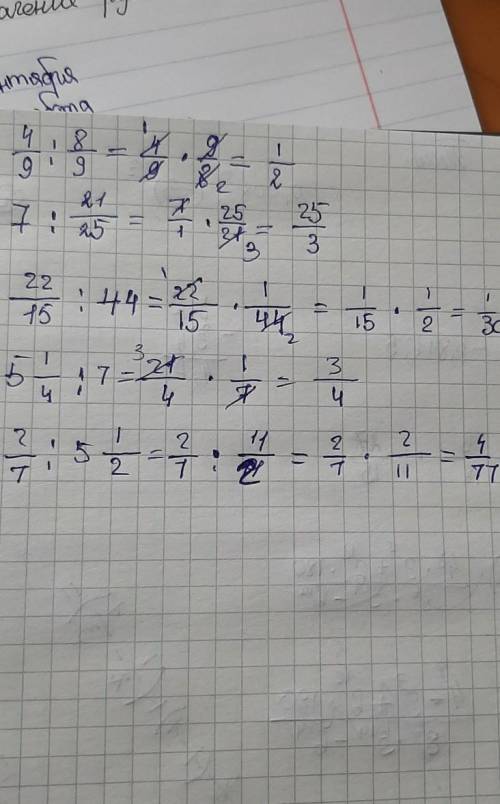 4/9 : 8/9 = 4/9 · 9/8 = 1/2
7 : 21/25 = 7/1 · 25/21 = 25/3
22/15 : 44 = 22/15 · 1/44 = 1/15 · 1/2 = 1/30
5 1/4 : 7 = 21/4 · 1/7 = 3/4
2/7 : 5 1/2 = 2/7 : 11/2 = 2/7 · 2/11 = 4/77